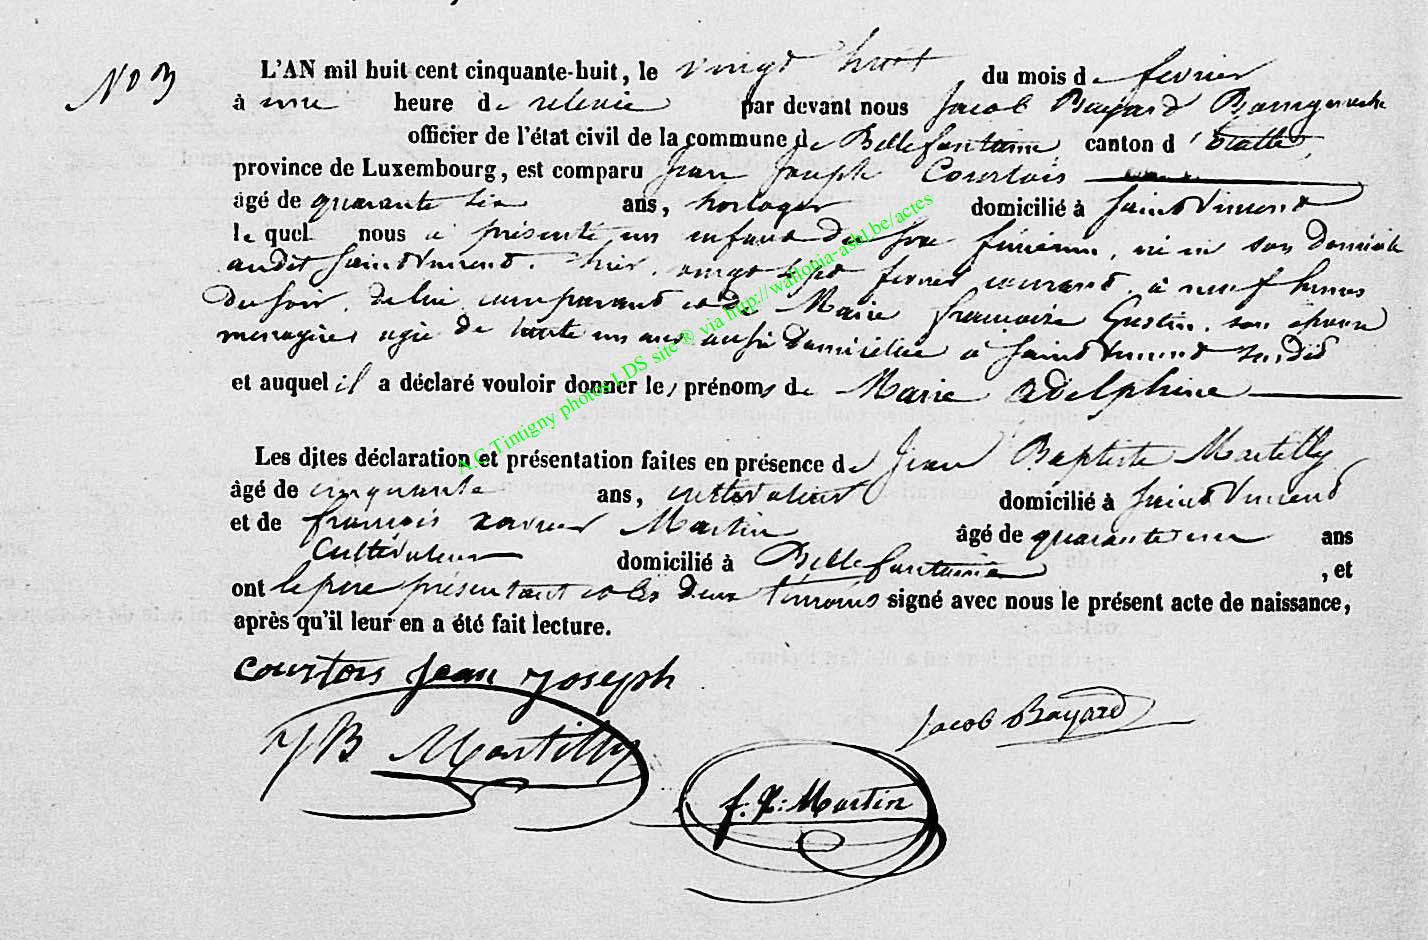 N° 3
L'AN mil huit cent cinquante-huit, le vingt huit du mois de fevrier
à une heure de relevée par devant nous Jacob Bayard Bourgmestre
officier de l'état civil de la commune de Bellefontaine canton d'Etalle,
province de Luxembourg, est comparu Jean Joseph Courtois
âgé de quarante six ans, horloger domicilié à Saint Vincent
lequel nous a présenté un enfant du sexe féminin, né en son domicile
audit Saint Vincent, hier, vingt sept fevrier courant, à neuf heures
du soir, de lui comparant et de Marie françoise Gustin, son épouse
menagère agée de trente un ans aussi domiciliée à Saint Vincent susdit
et auquel il a déclaré vouloir donner les prénoms de Marie Adelphine
Les dites déclaration et présentation faites en présence de Jean Baptiste Martilly
âgé de cinquante ans, cultivateur domicilié à Saint Vincent
et de françois xavier Martin âgé de quarante un ans
Cultivateur domicilié à Bellefontaine, et
ont le pere présentant et les deux témoins signé avec nous le présent acte de naissance,
après qu'il leur en a été fait lecture.
Courtois Jean Joseph
JB Martilly
Jacob Bayard
f. X: Martin
A.C Tintigny photos LDS site ® via http://wallonia-asbl.be/actes